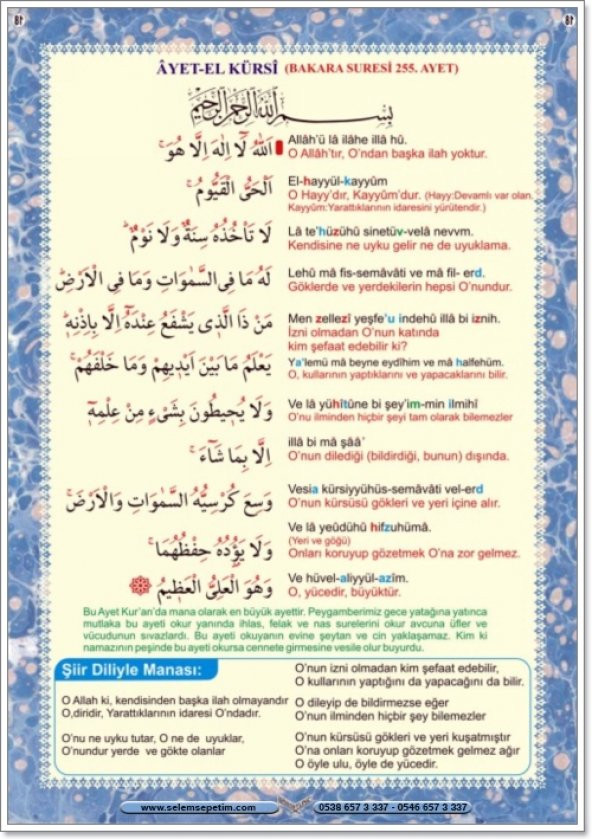 18
18
ÂYET-EL KÜRSÎ (BAKARA SURESİ 255. AYET)
بِسْمِ اللّٰهِ الرَّحْمٰنِ الرَّحِيمِ
اَللّٰهُ لَٓا اِلٰهَ اِلَّا هُوَۚ
Allâh'ü lâ ilâhe illâ hû.
O Allâh'tır, O'ndan başka ilah yoktur.
اَلْحَىُّ الْقَيُّومُۚ
El-hayyül-kayyûm
O Hayy'dır, Kayyûm'dur. (Hayy:Devamlı var olan.
Kayyûm:Yarattıklarının idaresini yürütendir.)
لَا تَأْخُذُهُ سِنَةٌ وَلَا نَوْمٌۜ
Lâ te'hüzühû sinetüv-velâ nevvm.
Kendisine ne uyku gelir ne de uyuklama.
لَهُ مَا فِى السَّمٰوَاتِ وَمَا فِى الْاَرْضِۜ
Lehû mâ fis-semâvâti ve mâ fil- erd.
Göklerde ve yerdekilerin hepsi O'nundur.
مَنْ ذَا الَّذ۪ى يَشْفَعُ عِنْدَهُٓ اِلَّا بِاِذْنِه۪ۜ
Men zellezî yeşfe'u indehû illâ bi iznih.
İzni olmadan O'nun katında
kim şefaat edebilir ki?
يَعْلَمُ مَا بَيْنَ اَيْد۪يهِمْ وَمَا خَلْفَهُمْۚ
Ya'lemü mâ beyne eydîhim ve mâ halfehüm.
O, kullarının yaptıklarını ve yapacaklarını bilir.
وَلَا يُح۪يطُونَ بِشَىْءٍ مِنْ عِلْمِه۪ٓ
Ve lâ yühîtûne bi şey'im-min ilmihî
O'nu ilminden hiçbir şeyi tam olarak bilemezler
اِلَّا بِمَا شَٓاءَۚ
illâ bi mâ şââ'
O'nun dilediği (bildirdiği, bunun) dışında.
وَسِعَ كُرْسِيُّهُ السَّمٰوَاتِ وَالْاَرْضَۚ
Vesia kürsiyyühüs-semâvâti vel-erd
O'nun kürsüsü gökleri ve yeri içine alır.
وَلَا يَؤُ۫دُهُ حِفْظُهُمَاۚ
Ve lâ yeûdühû hifzuhümâ.
(Yeri ve göğü)
Onları koruyup gözetmek O'na zor gelmez.
وَهُوَ الْعَلِىُّ الْعَظ۪يمُ
Ve hüvel-aliyyül-azîm.
O, yücedir, büyüktür.
Bu Ayet Kur'an'da mana olarak en büyük ayettir. Peygamberimiz gece yatağına yatınca
mutlaka bu ayeti okur yanında ihlas, felak ve nas surelerini okur avcuna üfler ve
vücudunun sıvazlardı. Bu ayeti okuyanın evine şeytan ve cin yaklaşamaz. Kim ki
namazının peşinde bu ayeti okursa cennete girmesine vesile olur buyurdu.
Şiir Diliyle Manası:
O Allah ki, kendisinden başka ilah olmayandır
O,diridir, Yarattıklarının idaresi O'ndadır.
O'nu ne uyku tutar, O ne de uyuklar,
O'nundur yerde ve gökte olanlar
O'nun izni olmadan kim şefaat edebilir,
O kullarının yaptığını da yapacağını da bilir.
O dileyip de bildirmezse eğer
O'nun ilminden hiçbir şey bilemezler
O'nun kürsüsü gökleri ve yeri kuşatmıştır
O'na onları koruyup gözetmek gelmez ağır
O öyle ulu, öyle de yücedir.
www.selemsepetim.com
0538 657 3 337 - 0546 657 3 337